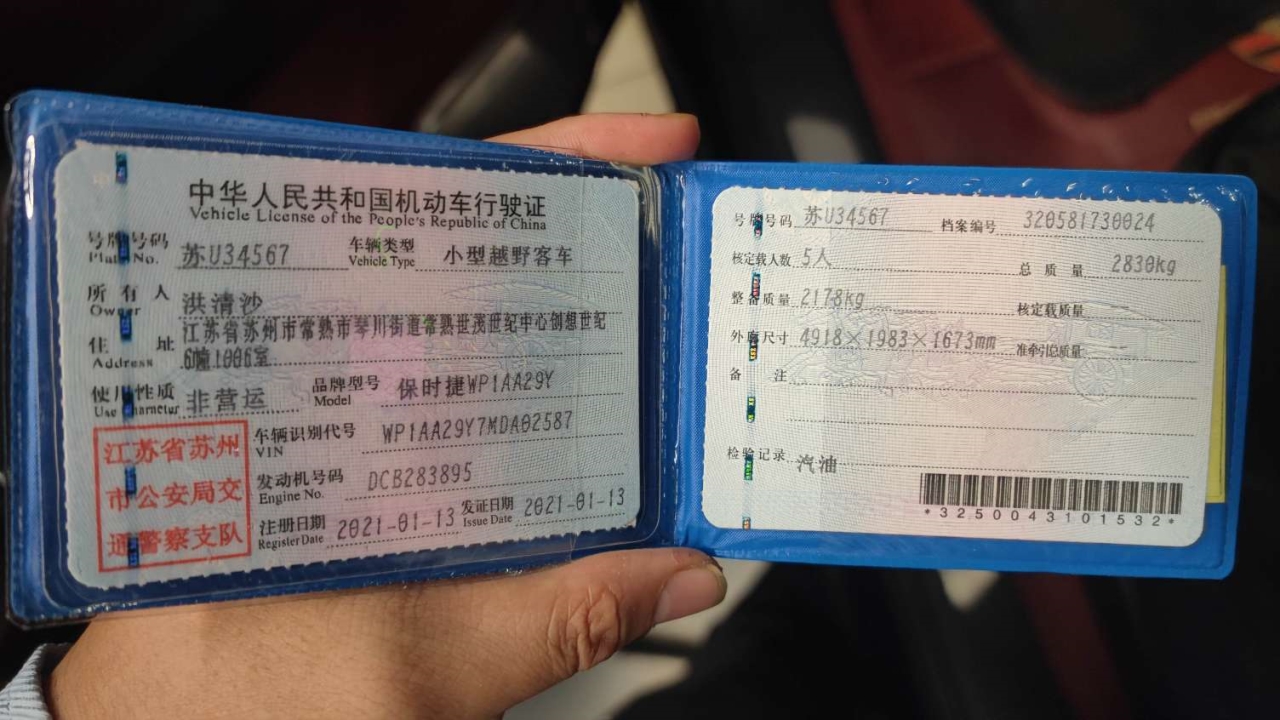 中华人民共和国机动车行驶证
Vehicle License of the People's Republic of China
号牌号码 苏U34567 车辆类型 小型越野客车
Plate No. Vehicle Type
所有人 洪清沙
Owner
住址 江苏省苏州市常熟市琴川街道常熟世茂世纪中心创想世纪
Address 6幢1006室
使用性质 非营运 品牌型号 保时捷WP1AA29Y
Use Character Model
江苏省苏州
市公安局交
通警察支队
车辆识别代号 WP1AA29Y7MDA02587
VIN
发动机号码 DCB283895
Engine No.
注册日期 2021-01-13 发证日期 2021-01-13
Register Date Issue Date
号牌号码 苏U34567 档案编号 320581730024
核定载人数 5人 总质量 2830kg
整备质量 2178kg 核定载质量
外廓尺寸 4918×1983×1673mm 准牵引总质量
备注
检验记录 汽油
*3250043101532*